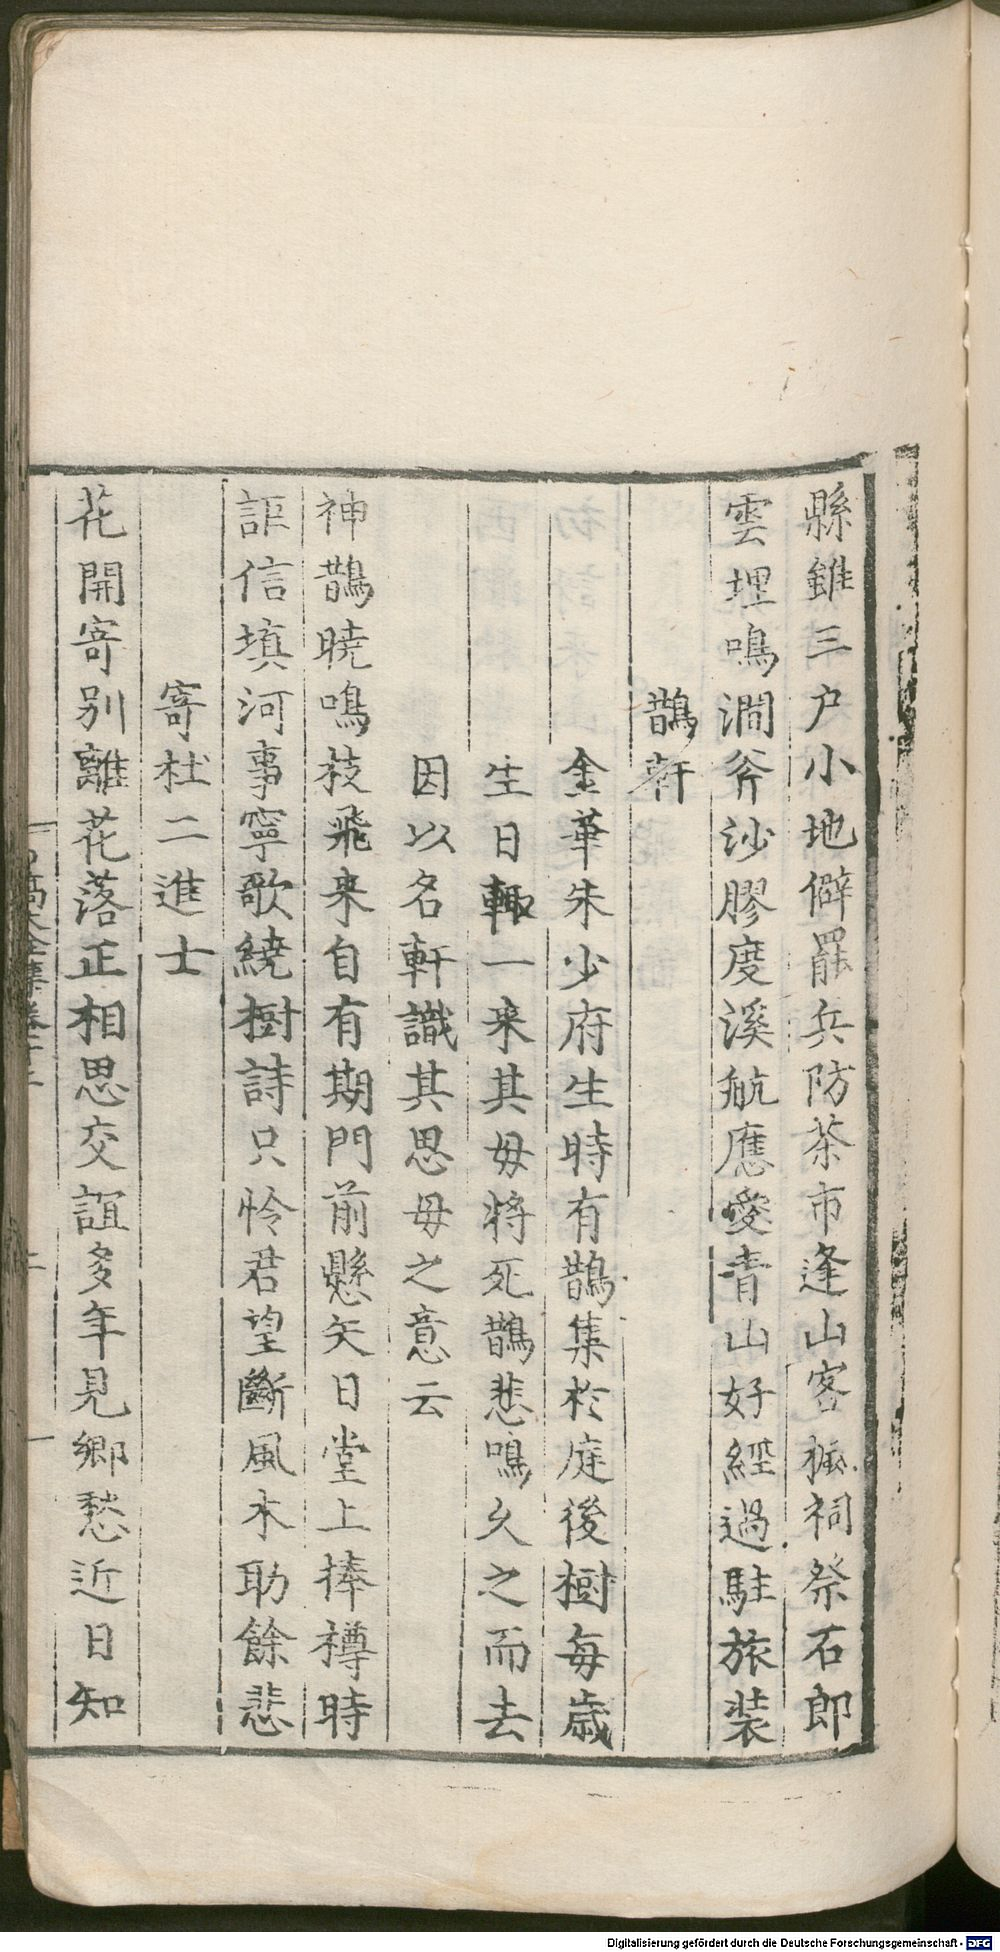 縣雖三户小地僻罷兵防茶市逢山客楓祠祭石郎
雲埋鳴澗斧沙膠度溪航應愛青山好經過駐旅装
鵲軒
金華朱少府生時有鵲集於庭後樹每歳
生日輙一来其毋將死鵲悲鳴久之而去
因以名軒識其思毋之意云
神鵲曉鳴枝飛来自有期門前懸矢日堂上捧樽時
詎信填河事寧歌繞樹詩只怜君望斷風木助餘悲
寄杜二進士
花開寄别離花落正相思交誼多年見郷愁近日知
高太全集卷十二
Digitalisierung gefördert durch die Deutsche Forschungsgemeinschaft - DFG